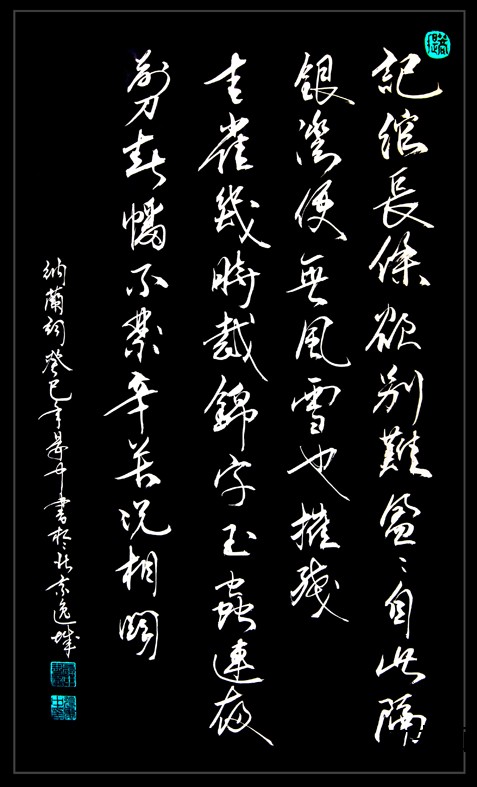 記綰長條欲別難盈〻自此隔
銀灣便無風雪也摧殘
青雀幾時裁錦字玉蟲連夜
剪春幡不禁辛苦況相關
納蘭詞癸巳年書於北京逸城